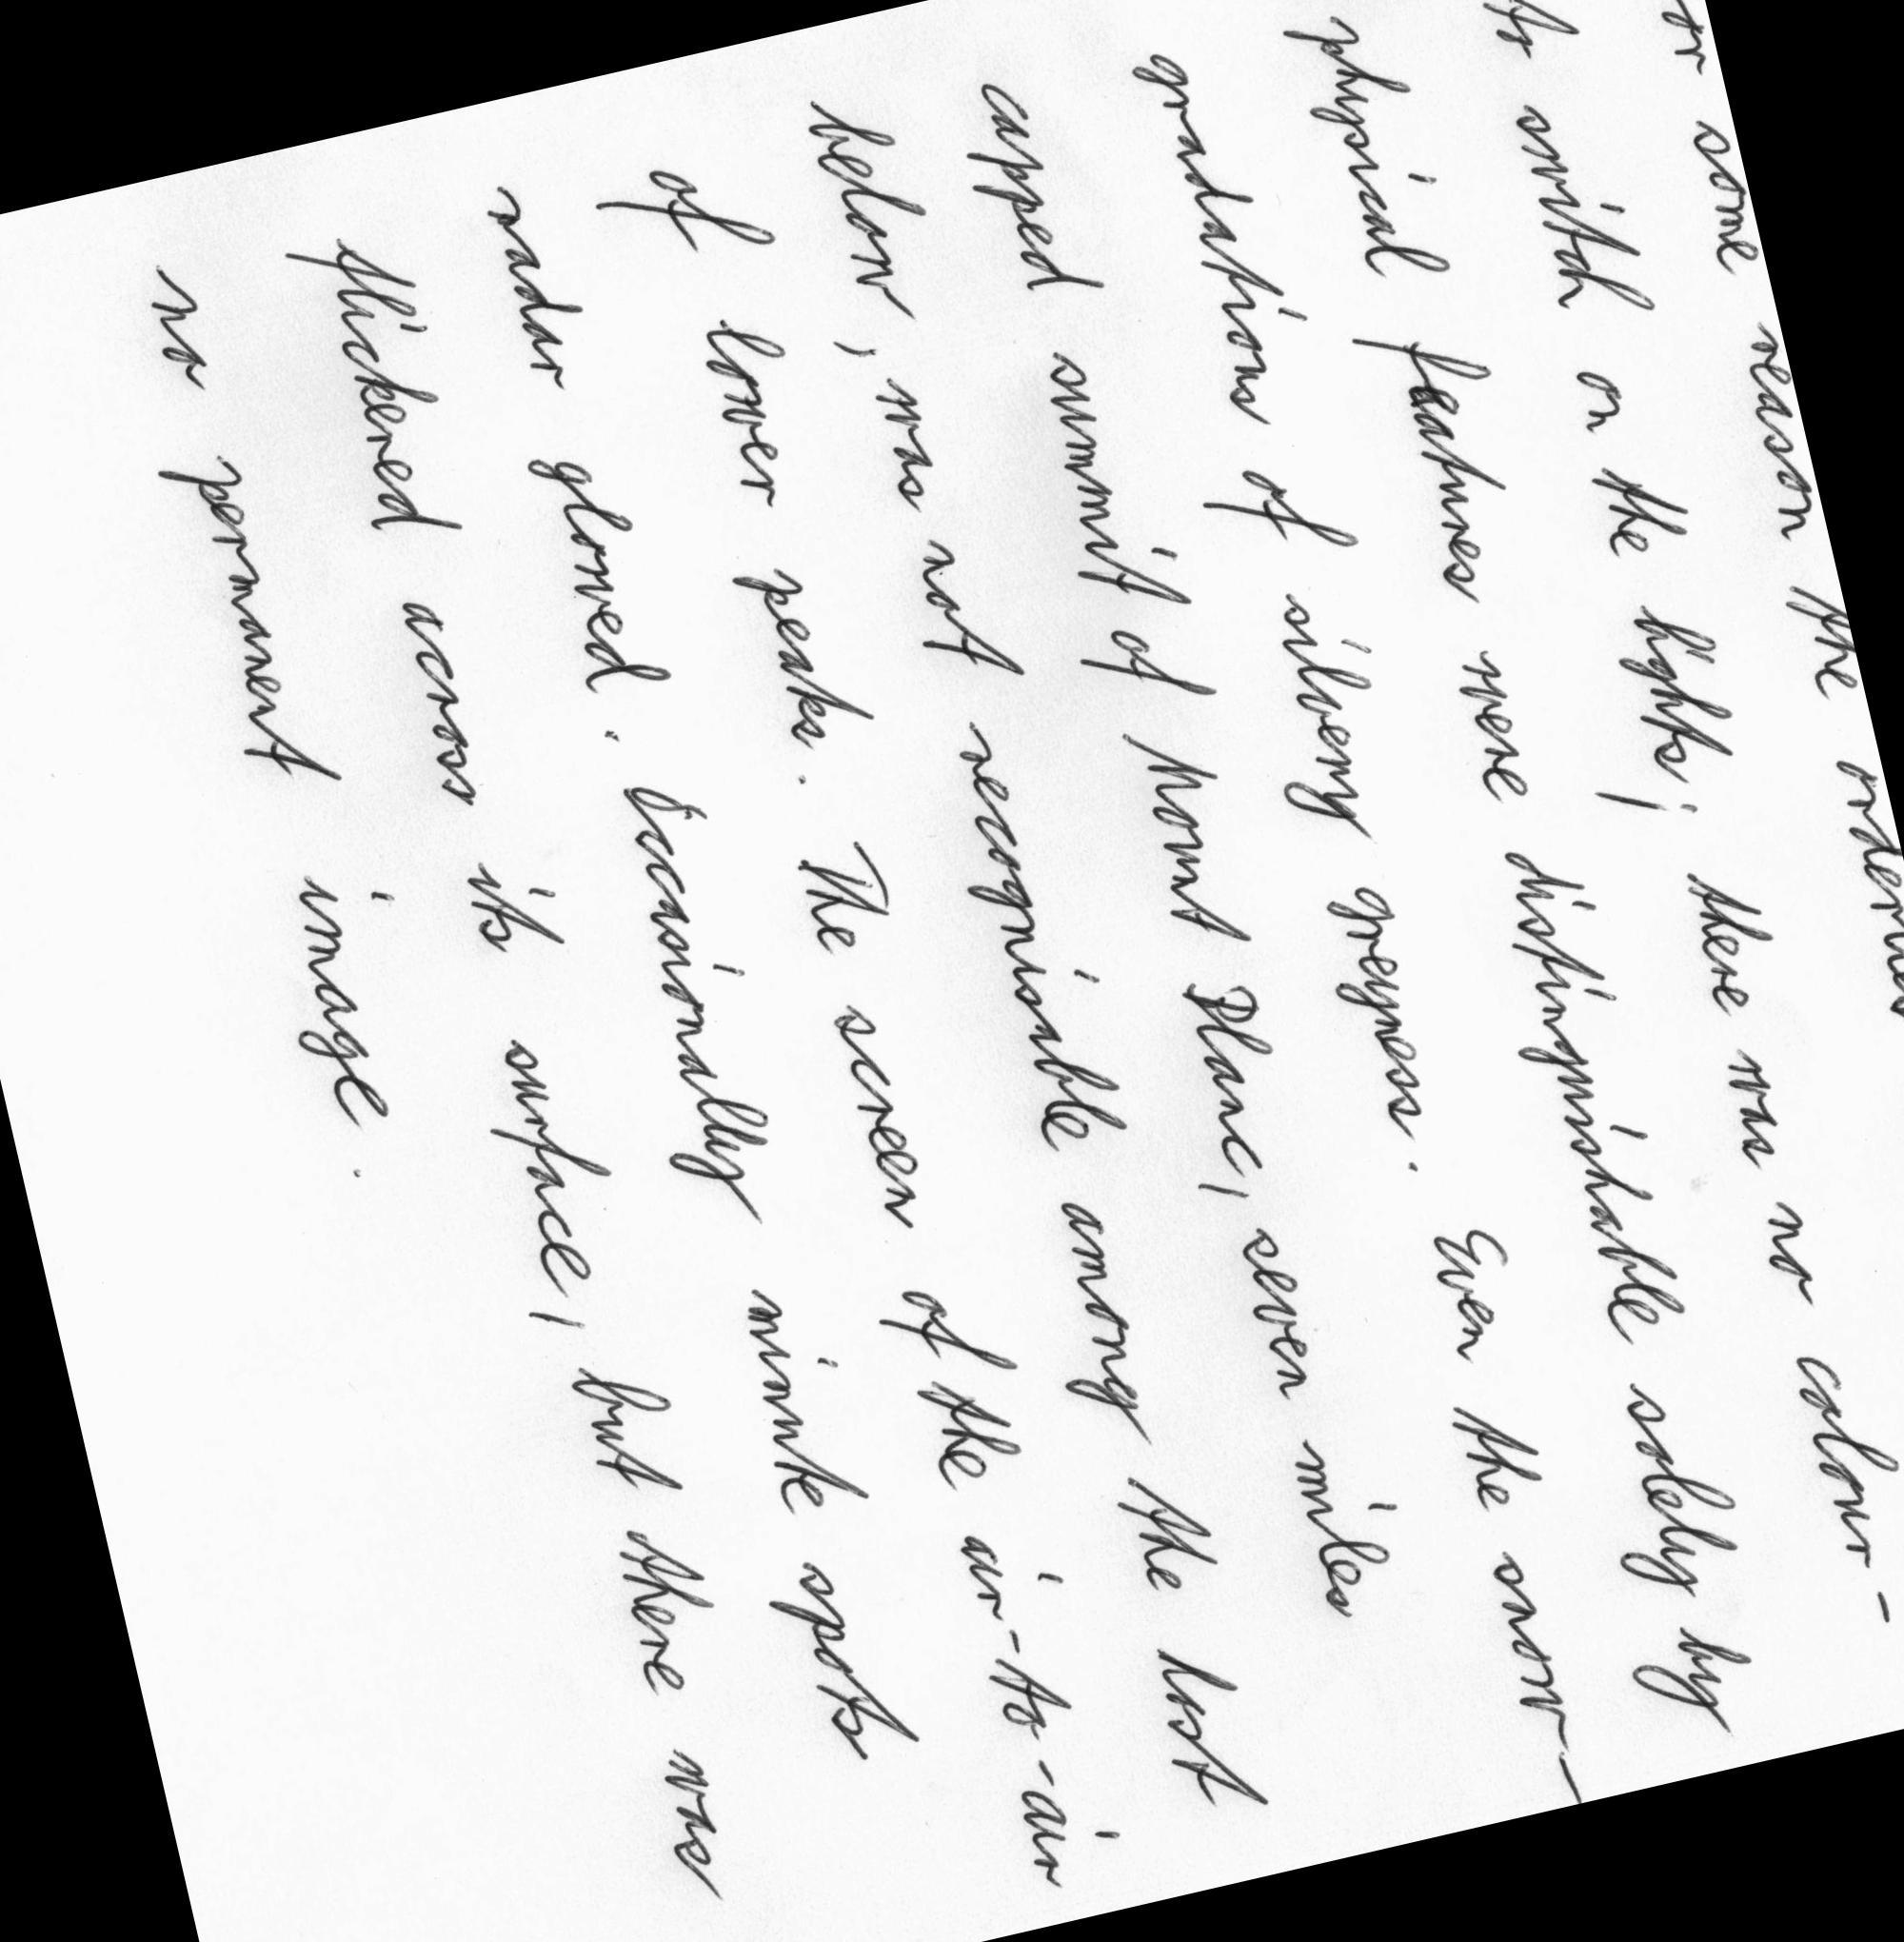 some reason the
switch on the lights; there was no colour-
physical features were distinguishable solely by
gradations of silvery greyness. Even the snow-
capped summit of Mount Blanc, seven miles
below, was not recognisable among the lost
of lower peaks. The screen of the air-to-air
radar glowed. Occasionally minute spots
flickered across its surface, but there was
no permanent image.